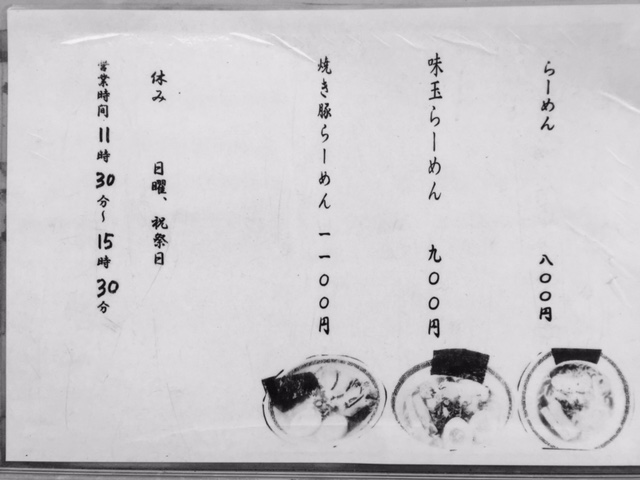 らーめん 八〇〇円
味玉らーめん 九〇〇円
焼き豚らーめん 一一〇〇円
休み 日曜、祝祭日
営業時間 11時30分〜15時30分